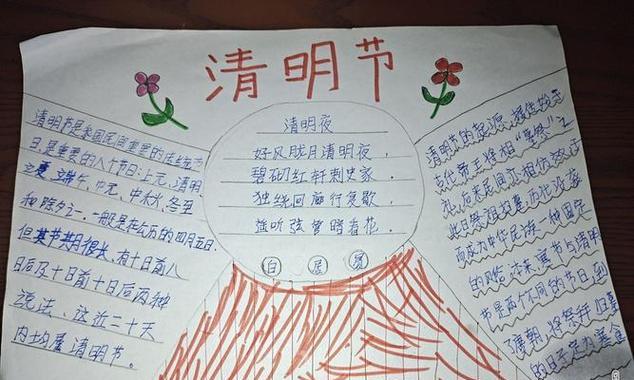 清明节
清明节是我国民间重要的传统节
日,是重要的八个节日:上元、清明、
立夏、端午、中元、中秋、冬至
和除夕之一。一般是在公历的四月五日.
但其节其月很长,有十日前八
日后及十日前十日后两种
说法、这近二十天
内均属清明节。
清明夜
好风胧月清明夜,
碧砌红轩刺史家。
独绕回廊行复歇,
遥听弦管暗看花.
白居易
清明节的起源,据传始于
古代帝王将相"墓祭"之
礼,后来民间亦相仿效,于
此日祭祖扫墓,历代沿袭
而成为中华民族一种固定
的风俗。本来,寒食节与清明
节是两个不同的节日,到
了唐朝,将祭拜扫墓
的日子定为寒食